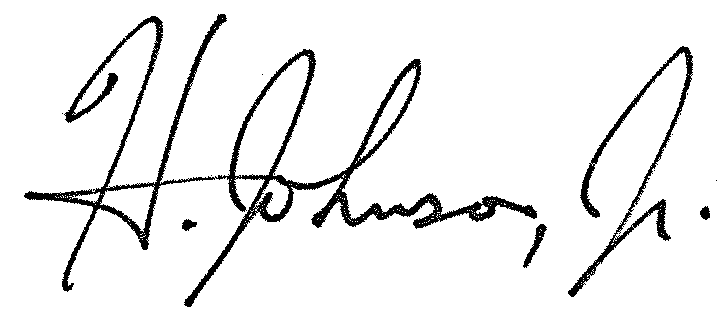 H. Johnson, Jr.